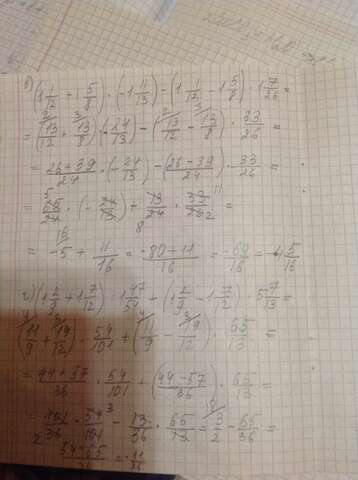 в) (1 1/12 + 1 5/8) · (-1 11/13) - (1 1/12 - 1 5/8) · 1 7/26 =
= (13/12 + 13/8) · (-24/13) - (13/12 - 13/8) · 33/26 =
= 26+39/24 · (-24/13) - (26-39/24) · 33/26 =
= 65/24 · (-24/13) + 13/24 · 33/26 =
= -5 + 11/16 = -80+11/16 = -69/16 = -4 5/16
г) (1 2/9 + 1 7/12) · 1 47/54 + (1 2/9 - 1 7/12) · 5 7/13 =
(11/9 + 19/12) · 54/101 + (11/9 - 19/12) · 65/13 =
= 44+57/36 · 54/101 + (44-57/36) · 65/13 =
= 101/36 · 54/101 - 13/36 · 65/13 = 3/2 - 65/36 =
54-65/36 = -11/36